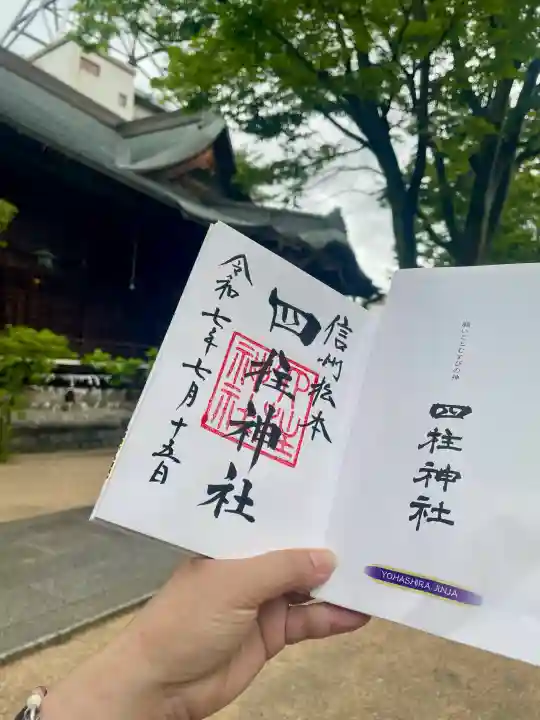 信州松本
四柱神社
令和七年七月十五日
四柱神社
願いごとむすびの神
四柱神社
YOHASHIRA JINJA